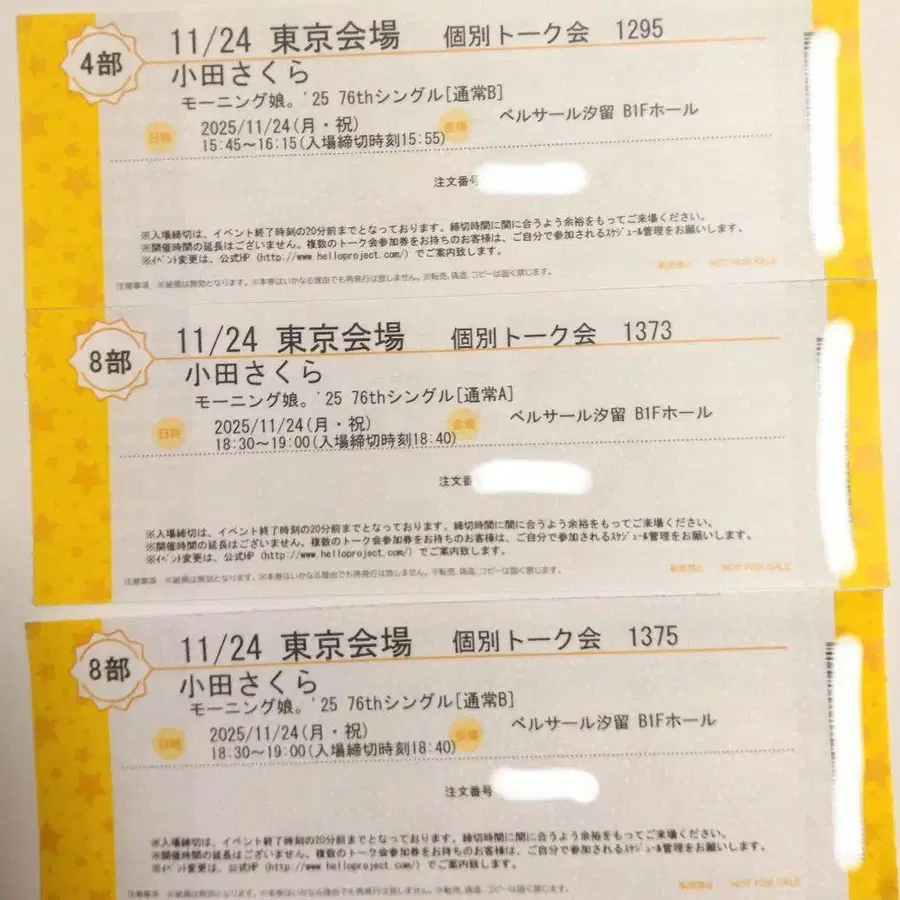 4部
11/24 東京会場 個別トーク会 1295
小田さくら
モーニング娘。'25 76thシングル[通常B]
日時 2025/11/24(月・祝) 会場 ベルサール汐留 B1Fホール
15:45~16:15(入場締切時刻15:55)
注文番号
※入場締切は、イベント終了時刻の20分前までとなっております。締切時間に間に合うよう余裕をもってご来場ください。
※開催時間の延長はございません。複数のトーク会参加券をお持ちのお客様は、ご自分で参加されるスケジュール管理をお願いします。
※イベント変更は、公式HP (http://www.helloproject.com/) でご案内致します。
転売禁止 NOT FOR SALE
注意事項 ※破損は無効となります。※本券はいかなる理由でも再発行は致しません。※転売、偽造、コピーは固く禁じます。
8部
11/24 東京会場 個別トーク会 1373
小田さくら
モーニング娘。'25 76thシングル[通常A]
日時 2025/11/24(月・祝) 会場 ベルサール汐留 B1Fホール
18:30~19:00(入場締切時刻18:40)
注文番
※入場締切は、イベント終了時刻の20分前までとなっております。締切時間に間に合うよう余裕をもってご来場ください。
※開催時間の延長はございません。複数のトーク会参加券をお持ちのお客様は、ご自分で参加されるスケジュール管理をお願いします。
※イベント変更は、公式HP (http://www.helloproject.com/) でご案内致します。
転売禁止 NOT FOR SALE
注意事項 ※破損は無効となります。※本券はいかなる理由でも再発行は致しません。※転売、偽造、コピーは固く禁じます。
8部
11/24 東京会場 個別トーク会 1375
小田さくら
モーニング娘。'25 76thシングル[通常B]
日時 2025/11/24(月・祝) 会場 ベルサール汐留 B1Fホール
18:30~19:00(入場締切時刻18:40)
注文番号
※入場締切は、イベント終了時刻の20分前までとなっております。締切時間に間に合うよう余裕をもってご来場ください。
※開催時間の延長はございません。複数のトーク会参加券をお持ちのお客様は、ご自分で参加されるスケジュール管理をお願いします。
※イベント変更は、公式HP (http://www.helloproject.com/) でご案内致します。
転売禁止 NOT FOR SALE
注意事項 ※破損は無効となります。※本券はいかなる理由でも再発行は致しません。※転売、偽造、コピーは固く禁じます。